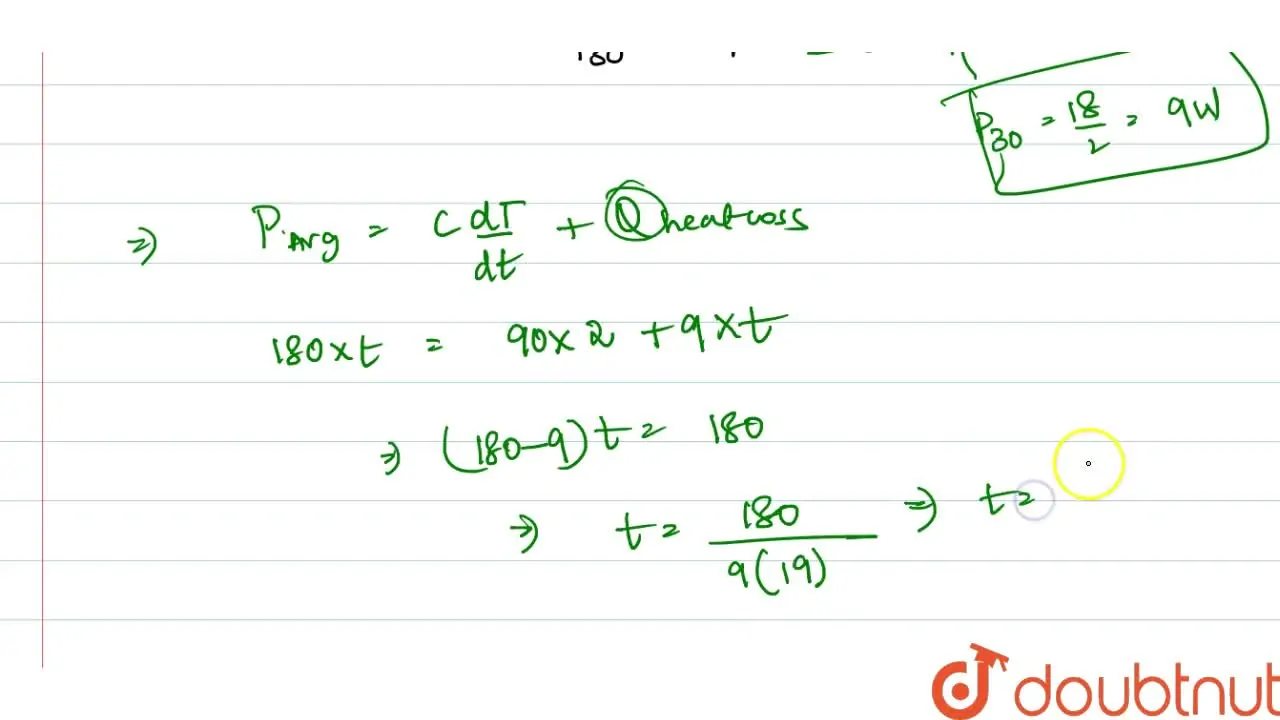 180
P30 = 18/2 = 9W
⇒ P.Avg = C dT/dt + Q heat loss
180×t = 90×2 + 9×t
⇒ (180-9)t = 180
⇒ t = 180/9(19) ⇒ t=
doubtnut